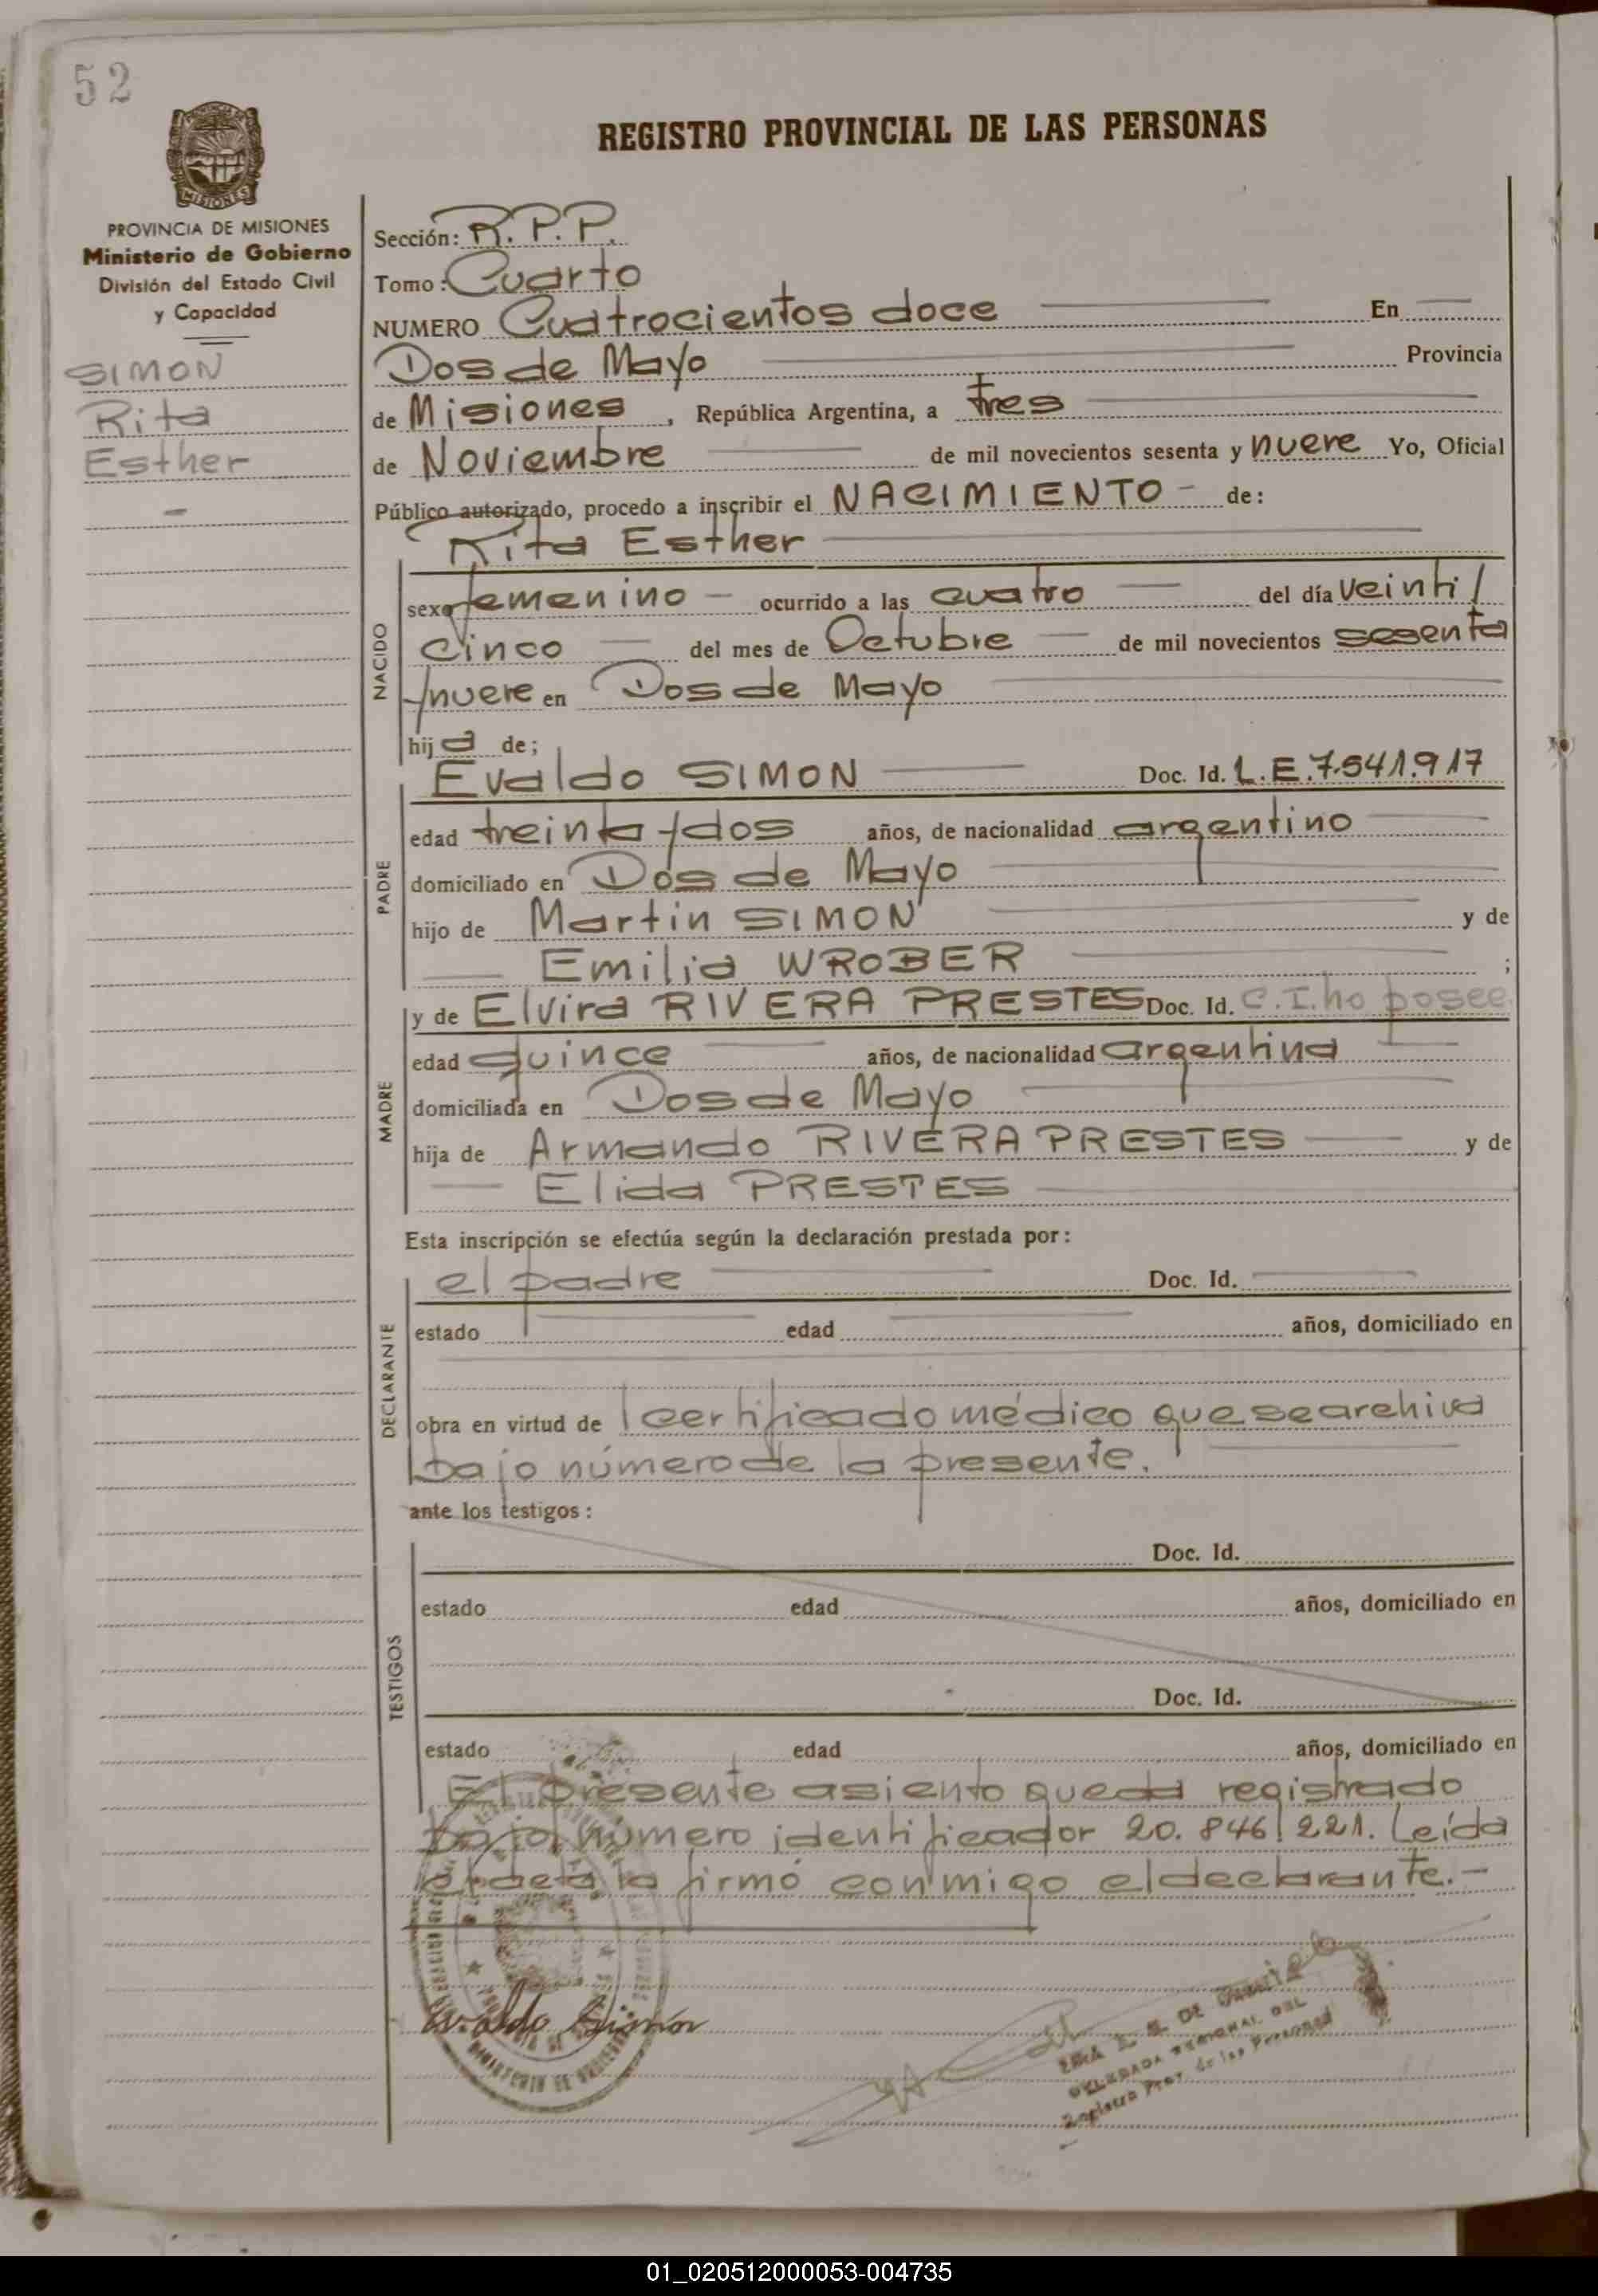 52
REGISTRO PROVINCIAL DE LAS PERSONAS
MISIONES
PROVINCIA DE MISIONES
Ministerio de Gobierno
División del Estado Civil
y Capacidad
SIMON
Rita
Esther
Sección: R. P. P.
Tomo: Cuarto
NUMERO Cuatrocientos doce En
Dos de Mayo Provincia
de Misiones, República Argentina, a tres
de Noviembre de mil novecientos sesenta y nueve Yo, Oficial
Público autorizado, procedo a inscribir el NACIMIENTO - de:
Rita Esther
NACIDO
sexo femenino - ocurrido a las cuatro del día veinti/
cinco del mes de Octubre de mil novecientos sesenta
y nueve en Dos de Mayo
hija de;
Evaldo SIMON Doc. Id. L.E. 7.541.917
PADRE
edad treinta y dos años, de nacionalidad argentino
domiciliado en Dos de Mayo
hijo de Martin SIMON y de
Emilia WROBER ;
y de Elvira RIVERA PRESTES Doc. Id. C.I. no posee
MADRE
edad quince años, de nacionalidad argentina
domiciliada en Dos de Mayo
hija de Armando RIVERA PRESTES y de
Elida PRESTES
Esta inscripción se efectúa según la declaración prestada por:
DECLARANTE
el padre Doc. Id.
estado edad años, domiciliado en
obra en virtud de l certificado médico que se archiva
bajo número de la presente.
ante los testigos:
TESTIGOS
Doc. Id.
estado edad años, domiciliado en
Doc. Id.
estado edad años, domiciliado en
El presente asiento queda registrado
bajo número identificador 20.846.221. Leída
el acta la firmó conmigo el declarante.-
Evaldo Simon
DELEGADA REGIONAL DEL
Registro Prov. de las Personas
01_020512000053-004735